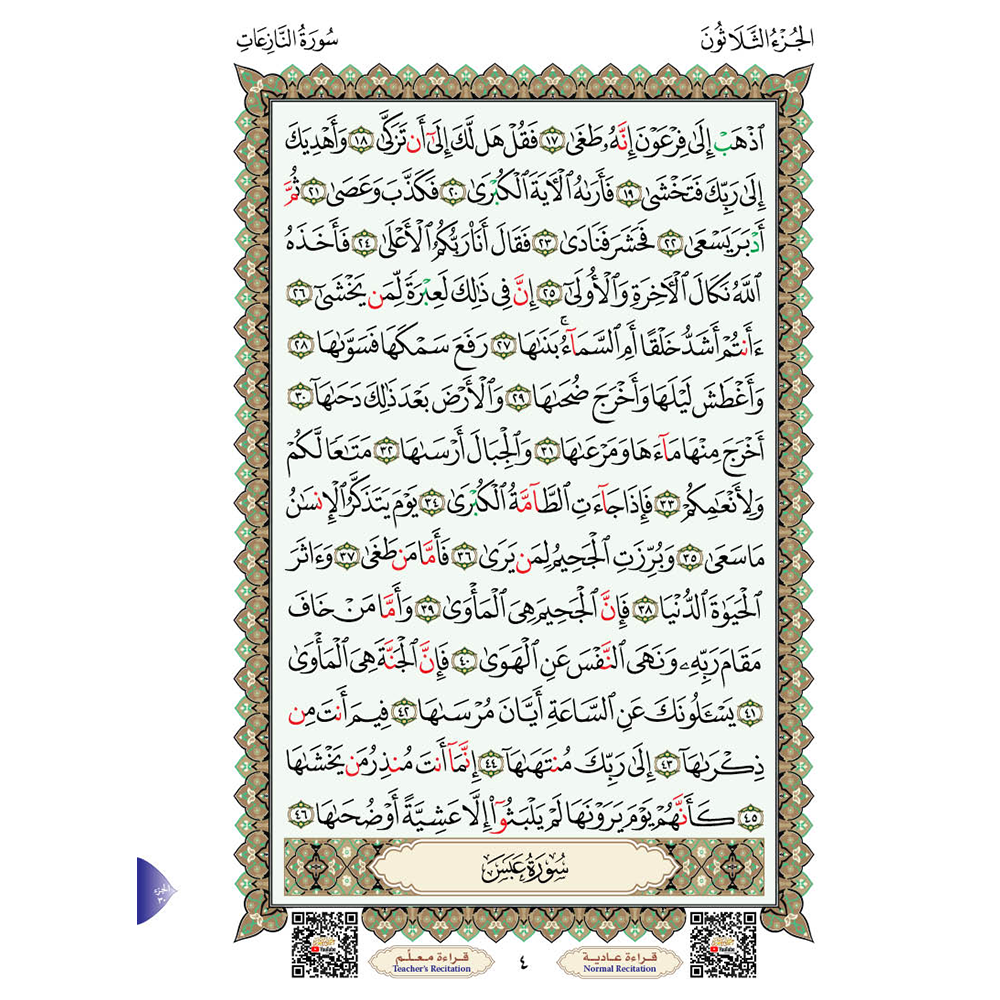 الجُزْءُ الثَّلَاثُونَ
سُورَةُ النَّازِعَاتِ
ٱذْهَبْ إِلَىٰ فِرْعَوْنَ إِنَّهُۥ طَغَىٰ ١٧ فَقُلْ هَل لَّكَ إِلَىٰٓ أَن تَزَكَّىٰ ١٨ وَأَهْدِيَكَ
إِلَىٰ رَبِّكَ فَتَخْشَىٰ ١٩ فَأَرَىٰهُ ٱلْءَايَةَ ٱلْكُبْرَىٰ ٢٠ فَكَذَّبَ وَعَصَىٰ ٢١ ثُمَّ
أَدْبَرَ يَسْعَىٰ ٢٢ فَحَشَرَ فَنَادَىٰ ٢٣ فَقَالَ أَنَا۠ رَبُّكُمُ ٱلْأَعْلَىٰ ٢٤ فَأَخَذَهُ
ٱللَّهُ نَكَالَ ٱلْءَاخِرَةِ وَٱلْأُولَىٰٓ ٢٥ إِنَّ فِى ذَٰلِكَ لَعِبْرَةً لِّمَن يَخْشَىٰٓ ٢٦
ءَأَنتُمْ أَشَدُّ خَلْقًا أَمِ ٱلسَّمَآءُ ۚ بَنَىٰهَا ٢٧ رَفَعَ سَمْكَهَا فَسَوَّىٰهَا ٢٨
وَأَغْطَشَ لَيْلَهَا وَأَخْرَجَ ضُحَىٰهَا ٢٩ وَٱلْأَرْضَ بَعْدَ ذَٰلِكَ دَحَىٰهَآ ٣٠
أَخْرَجَ مِنْهَا مَآءَهَا وَمَرْعَىٰهَا ٣١ وَٱلْجِبَالَ أَرْسَىٰهَا ٣٢ مَتَٰعًا لَّكُمْ
وَلِأَنْعَٰمِكُمْ ٣٣ فَإِذَا جَآءَتِ ٱلطَّآمَّةُ ٱلْكُبْرَىٰ ٣٤ يَوْمَ يَتَذَكَّرُ ٱلْإِنسَٰنُ
مَا سَعَىٰ ٣٥ وَبُرِّزَتِ ٱلْجَحِيمُ لِمَن يَرَىٰ ٣٦ فَأَمَّا مَن طَغَىٰ ٣٧ وَءَاثَرَ
ٱلْحَيَوٰةَ ٱلدُّنْيَا ٣٨ فَإِنَّ ٱلْجَحِيمَ هِىَ ٱلْمَأْوَىٰ ٣٩ وَأَمَّا مَنْ خَافَ
مَقَامَ رَبِّهِۦ وَنَهَى ٱلنَّفْسَ عَنِ ٱلْهَوَىٰ ٤٠ فَإِنَّ ٱلْجَنَّةَ هِىَ ٱلْمَأْوَىٰ
٤١ يَسْـَٔلُونَكَ عَنِ ٱلسَّاعَةِ أَيَّانَ مُرْسَىٰهَا ٤٢ فِيمَ أَنتَ مِن
ذِكْرَىٰهَآ ٤٣ إِلَىٰ رَبِّكَ مُنتَهَىٰهَآ ٤٤ إِنَّمَآ أَنتَ مُنذِرُ مَن يَخْشَىٰهَا
٤٥ كَأَنَّهُمْ يَوْمَ يَرَوْنَهَا لَمْ يَلْبَثُوٓا۟ إِلَّا عَشِيَّةً أَوْ ضُحَىٰهَا ٤٦
سُورَةُ عَبَسَ
الجزء
٣٠
قراءة عادية
Normal Recitation
٤
قراءة معلّم
Teacher's Recitation
YouTube
YouTube